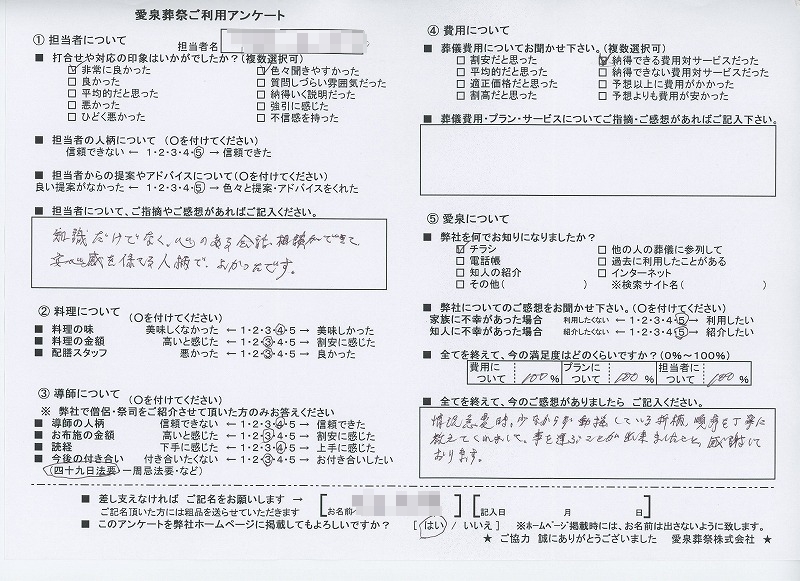 愛泉葬祭ご利用アンケート
① 担当者について
担当者名
■ 打合せや対応の印象はいかがでしたか?(複数選択可)
☑ 非常に良かった ☑ 色々聞きやすかった
□ 良かった □ 質問しづらい雰囲気だった
□ 平均的だと思った □ 納得いく説明だった
□ 悪かった □ 強引に感じた
□ ひどく悪かった □ 不信感を持った
■ 担当者の人柄について (〇を付けてください)
信頼できない ← 1・2・3・4・⑤ → 信頼できた
■ 担当者からの提案やアドバイスについて(〇を付けてください)
良い提案がなかった ← 1・2・3・4・⑤ → 色々と提案・アドバイスをくれた
■ 担当者について、ご指摘やご感想があればご記入ください。
知識だけでなく、心のある会話、相談ができて、
安心感を得る人柄で、よかったです。
② 料理について (〇を付けてください)
■ 料理の味 美味しくなかった ← 1・2・3・④・5 → 美味しかった
■ 料理の金額 高いと感じた ← 1・2・③・4・5 → 割安に感じた
■ 配膳スタッフ 悪かった ← 1・2・③・4・5 → 良かった
③ 導師について (〇を付けてください)
※ 弊社で僧侶・祭司をご紹介させて頂いた方のみお答えください
■ 導師の人柄 信頼できない ← 1・2・3・④・5 → 信頼できた
■ お布施の金額 高いと感じた ← 1・2・③・4・5 → 割安に感じた
■ 読経 下手に感じた ← 1・2・3・④・5 → 上手に感じた
■ 今後の付き合い 付き合いたくない ← 1・2・③・4・5 → お付き合いしたい
(四十九日法要・一周忌法要・など)
④ 費用について
■ 葬儀費用についてお聞かせ下さい。(複数選択可)
□ 割安だと思った ☑ 納得できる費用対サービスだった
□ 平均的だと思った □ 納得できない費用対サービスだった
□ 適正価格だと思った □ 予想以上に費用がかかった
□ 割高だと思った □ 予想よりも費用が安かった
■ 葬儀費用・プラン・サービスについてご指摘・ご感想があればご記入下さい。
⑤ 愛泉について
■ 弊社を何でお知りになりましたか?
☑ チラシ □ 他の人の葬儀に参列して
□ 電話帳 □ 過去に利用したことがある
□ 知人の紹介 □ インターネット
□ その他( ) ※検索サイト名( )
■ 弊社についてのご感想をお聞かせ下さい。(〇を付けてください)
家族に不幸があった場合 利用したくない ← 1・2・3・4・⑤ → 利用したい
知人に不幸があった場合 紹介したくない ← 1・2・3・4・⑤ → 紹介したい
■ 全てを終えて、今の満足度はどのくらいですか?(0%~100%)
費用について 100 % プランについて 100 % 担当者について 100 %
■ 全てを終えて、今のご感想がありましたら ご記入ください。
情況急変時、少なからず動揺している折柄、順序を丁寧に
教えてくれました。事を運ぶことが出来ましたこと、感謝して
おります。
■ 差し支えなければ ご記名をお願いします → [お名前 ] [記入日 月 日]
ご記名頂いた方には粗品を送らせていただきます
■ このアンケートを弊社ホームページに掲載してもよろしいですか? [ はい / いいえ ] ※ホームページ掲載時には、お名前は出さないように致します。
★ ご協力 誠にありがとうございました 愛泉葬祭株式会社 ★